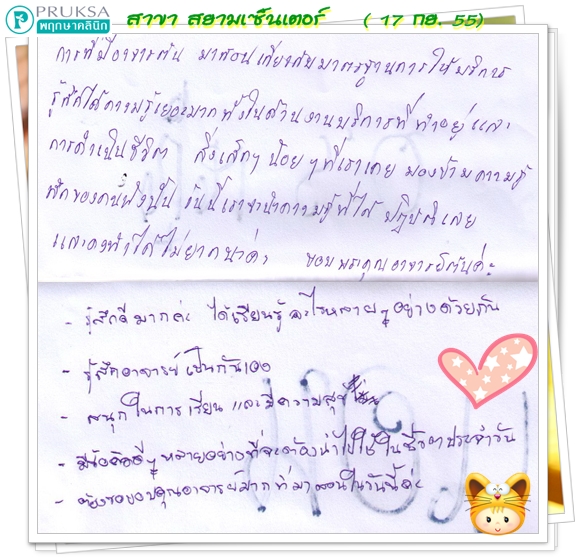 PRUKSA
พฤกษาคลินิก
สาขา สยามเซ็นเตอร์ ( 17 กย. 55)
การที่มีอาจารย์ต้น มาสอนเกี่ยวกับมาตรฐานการให้บริการ
รู้สึกได้ความรู้เยอะมากทั้งในส่วนงานบริการที่ทำอยู่และ
การดำเป็นชีวิต สิ่งเล็กๆ น้อยๆที่เราเคย มองข้ามความรู้
สึกของคนฟังนั้น วันนี้เราจะนำความรู้ที่ได้ ปฏิบัติเลย
และคงทำได้ไม่ยากนะค่ะ ขอบพระคุณอาจารย์ต้นค่ะ
- รู้สึกดีมากค่ะ ได้เรียนรู้ อะไรหลายๆอย่างด้วยกัน
- รู้สึกอาจารย์ เป็นกันเอง
- สนุกในการเรียน และมีความสุข
- มีข้อคิดดีๆ หลายอย่างที่จะต้องนำไปใช้ในชีวิตประจำวัน
- ต้องขอขอบคุณอาจารย์มากที่มาสอนในวันนี้ค่ะ